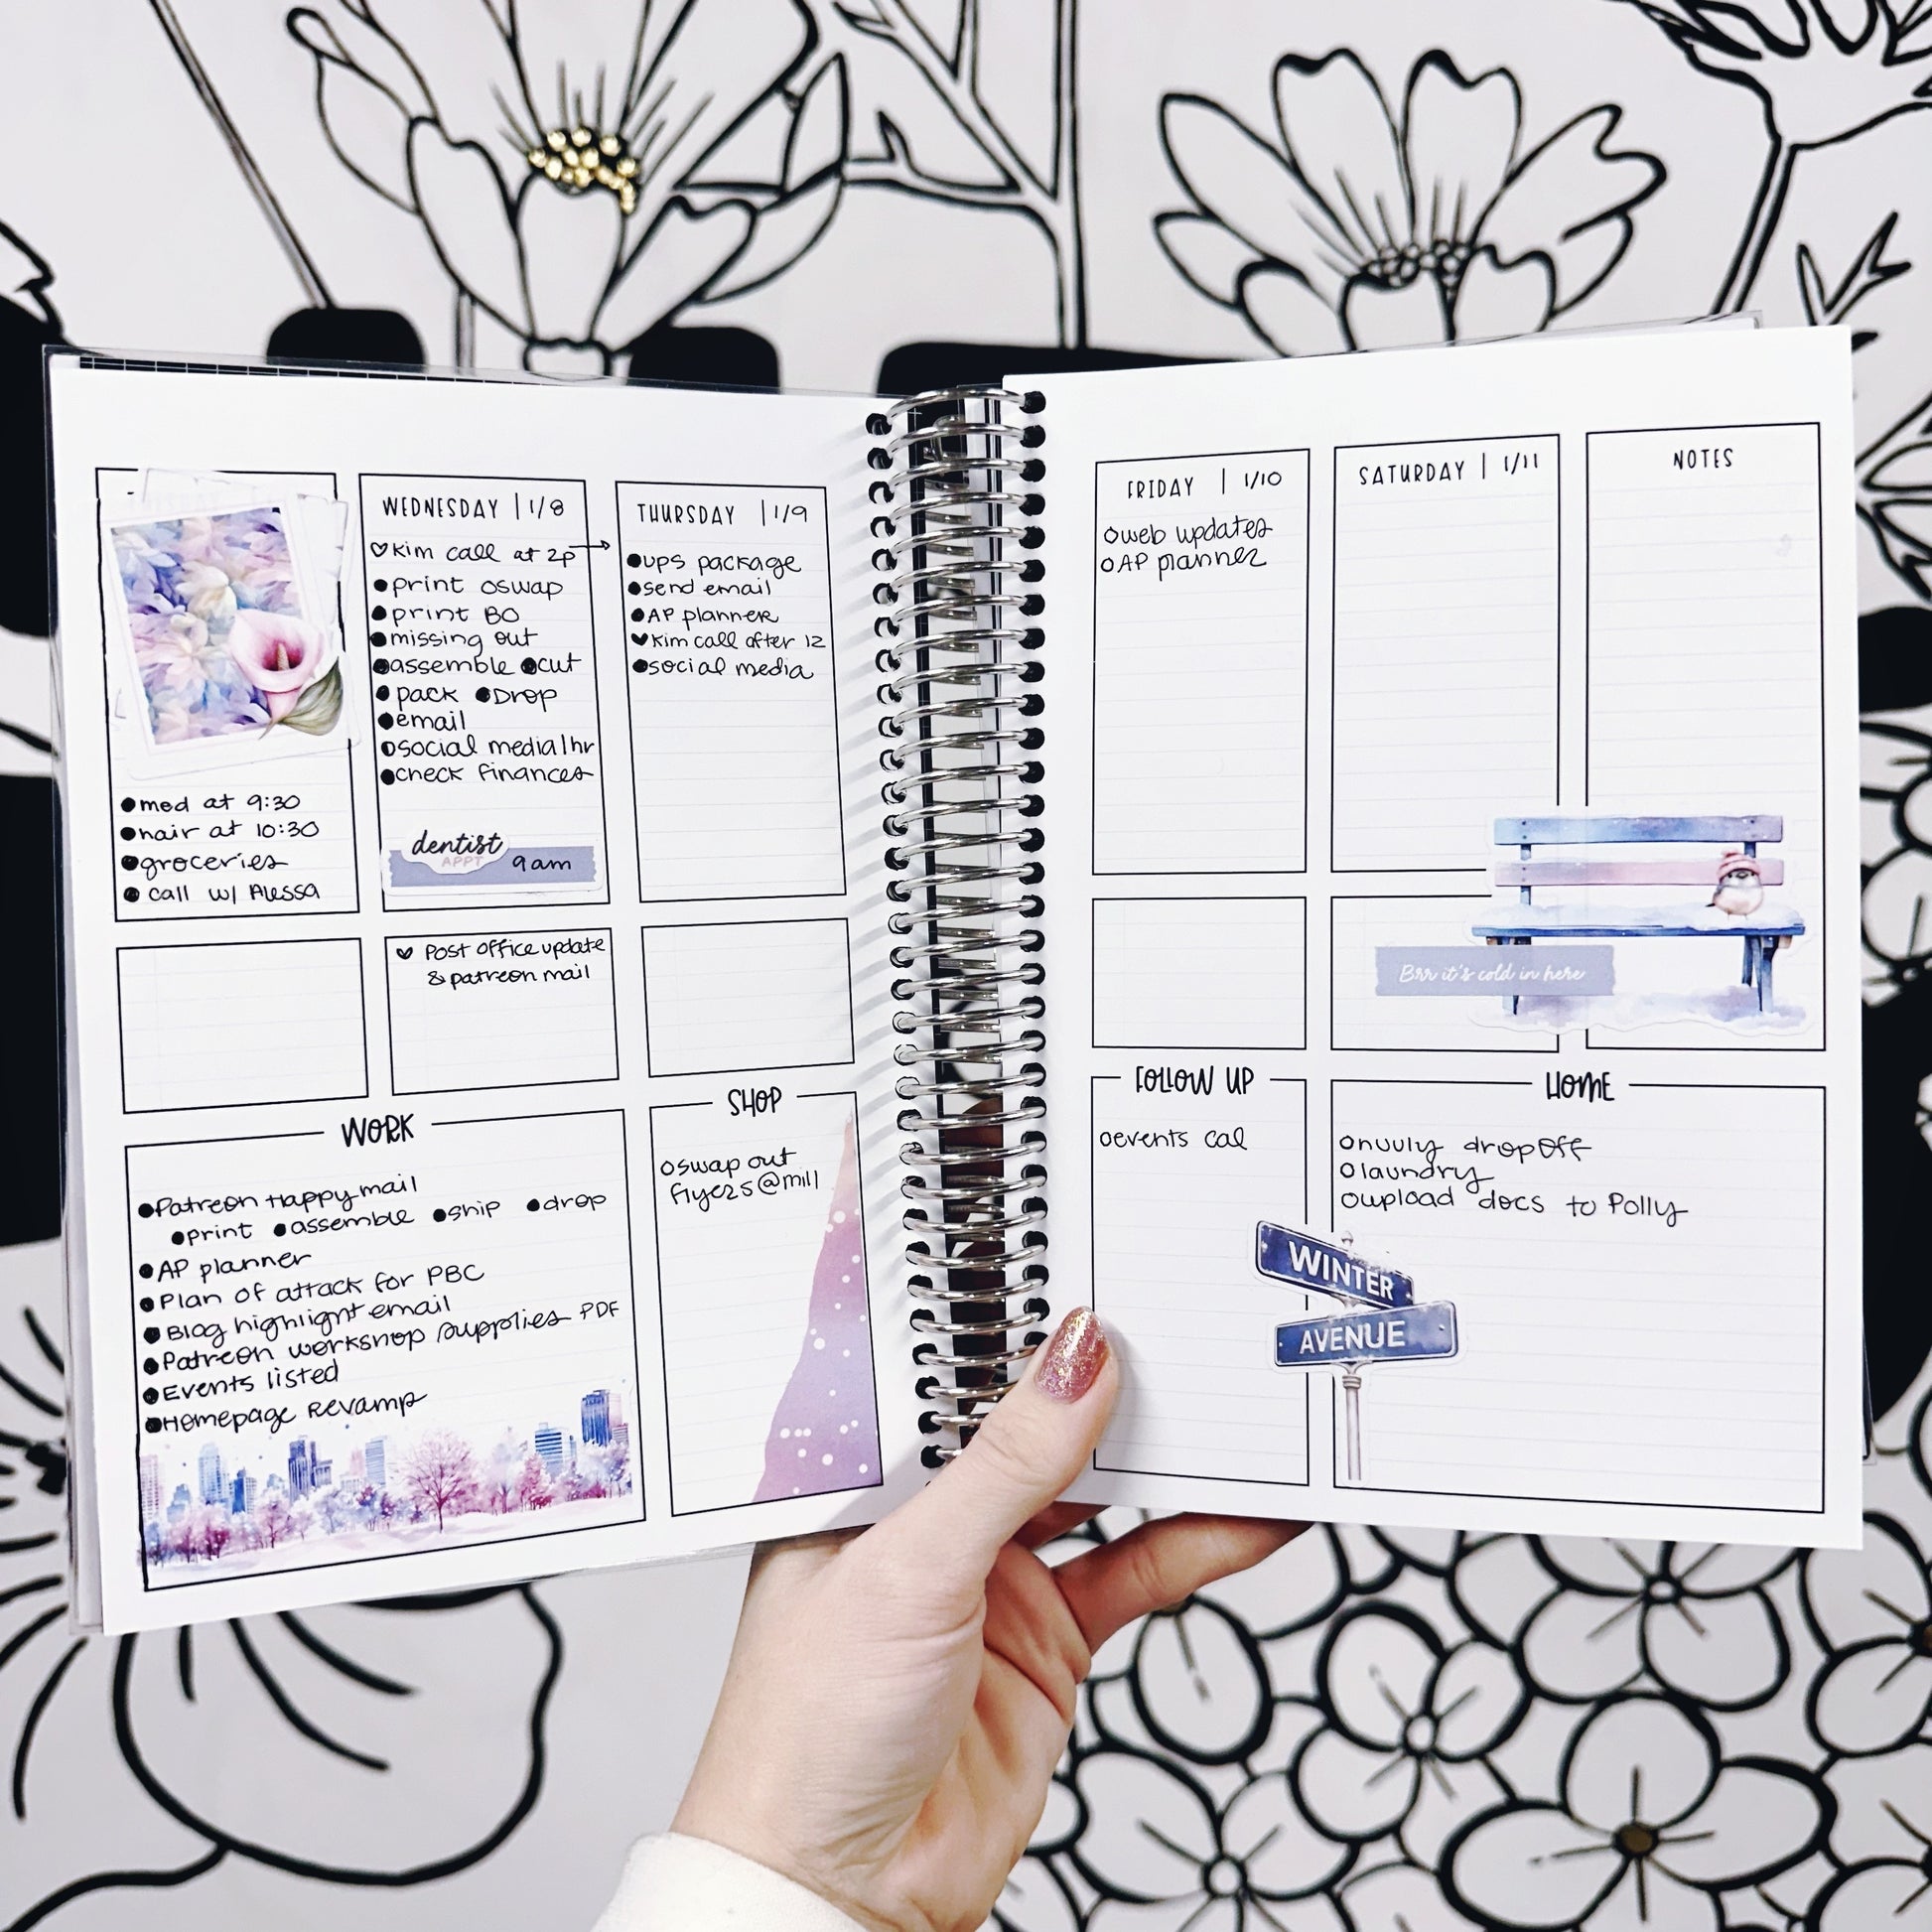 med at 9:30
hair at 10:30
groceries
call w/ Alessa
WEDNESDAY | 1/8
Kim call at 2p →
print oswap
print BO
missing out
assemble cut
pack Drop
email
social media 1hr
check finances
dentist
APPT
9am
Post office update
& patreon mail
THURSDAY | 1/9
ups package
send email
AP planner
Kim call after 12
social media
WORK
Patreon Happy mail
print assemble ship drop
AP planner
Plan of attack for PBC
Blog highlight email
Patreon workshop supplies PDF
Events listed
Homepage Revamp
SHOP
swap out
flyers @ mill
FRIDAY | 1/10
web updates
AP planner
SATURDAY | 1/11
NOTES
Brr it's cold in here
FOLLOW UP
events cal
HOME
nuuly dropoff
laundry
upload docs to Polly
WINTER
AVENUE